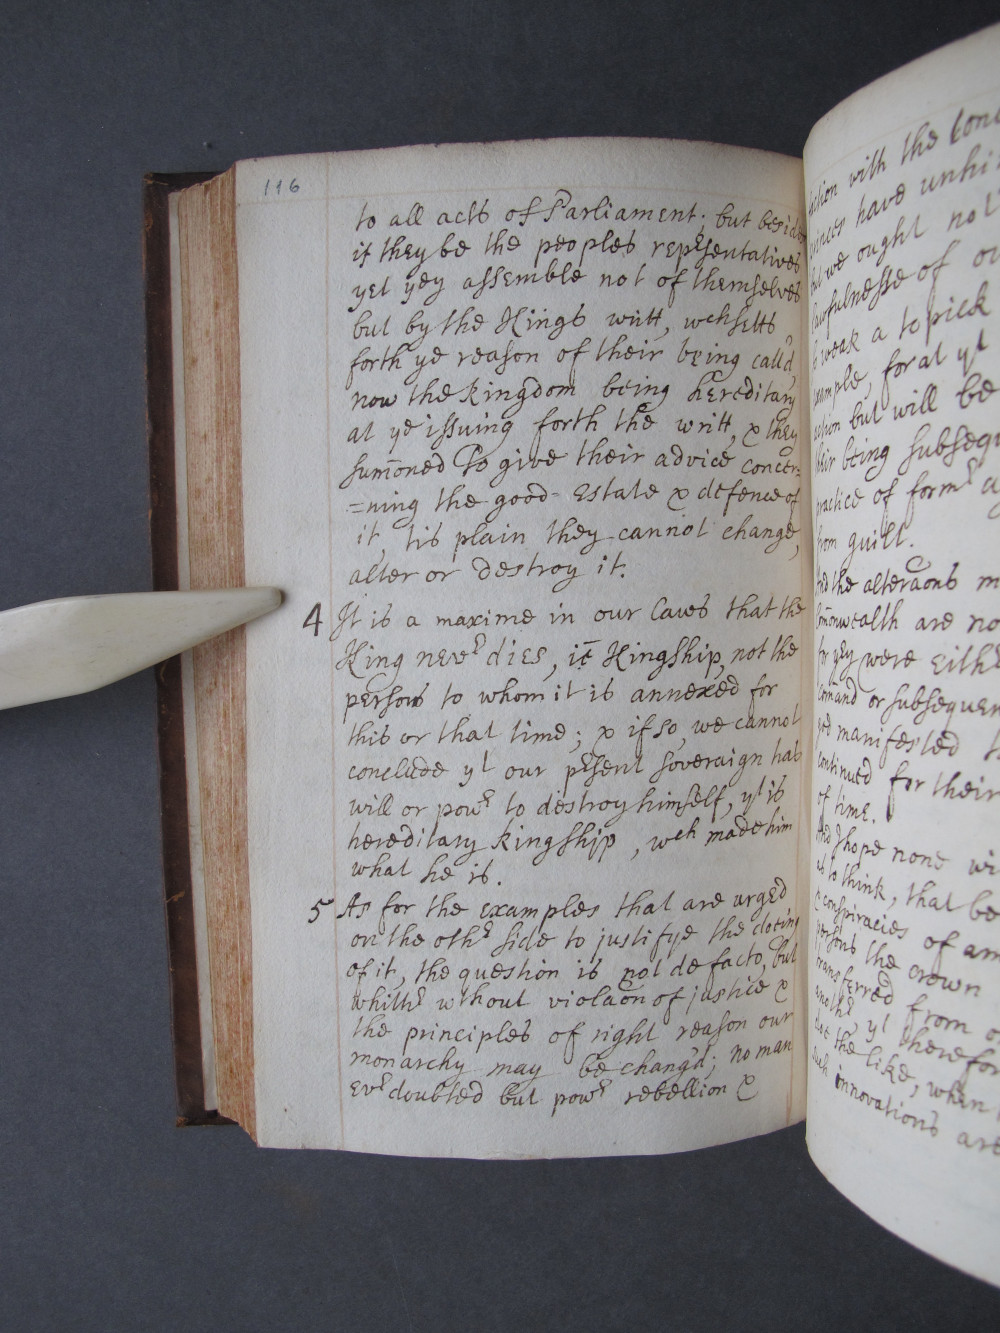 116
to all acts of Parliament; but besides
if they be the peoples rep^rsentatives
yet yey assemble not of themselves
but by the Kings writt, w^ch setts
forth ye reason of their being call'd,
now the kingdom being hereditary
at ye issuing forth the writt, & they
sum̄oned to give their advice concer=
=ning the good Estate & defence of
it, tis plain they cannot change,
alter or destroy it.
4 It is a maxime in our Laws that the
King nev^r dies, ie Kingship, not the
persons to whom it is annexed for
this or that time; & if so, we cannot
conclude y^t our p^rsent soveraign hath
will or pow^r to destroy himself, y^t is
hereditary kingship, w^ch made him
what he is.
5 As for the examples that are urged
on the oth^r side to justifye the doeing
of it, the question is not de facto, but
whith^r without violac̄on of justice &
the principles of right reason our
monarchy may be chang'd; no man
ev^r doubted but pow^r rebellion &
with the
have unhi
we ought not
lawfulnesse of ou
weak a to pick
for at y^t
but will be
being subseq
practice of form^r a
from guilt.
And the alterac̄ons m
Com̄onwealth are no
for yey were eith^r
com̄and or subsequen
manifested
continued for their
of time.
And I hope none wi
as to think, that be
& conspiracies of am
persons the crown
transferred from o
anoth^r, y^t therefor
the like, when
such innovations are